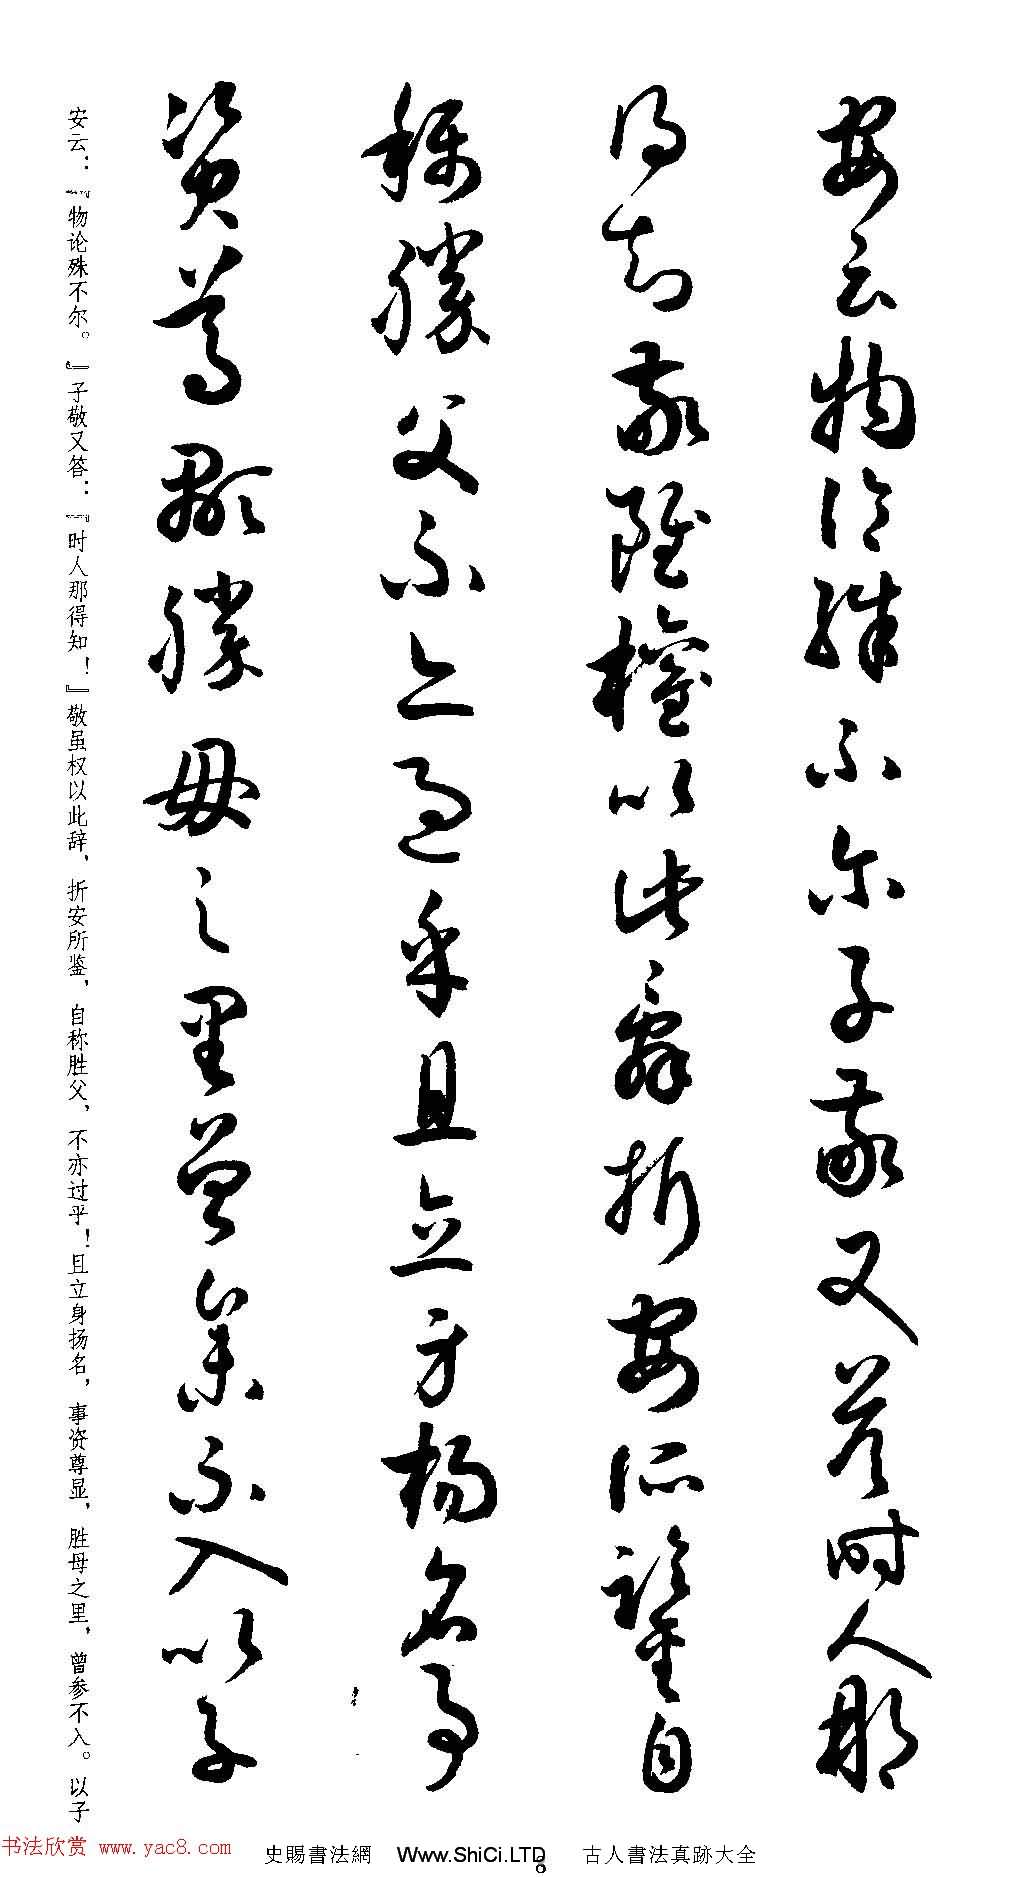 安云物论殊不尔子敬又答时人那
得知敬虽权以此辞折安所鉴自
称胜父不亦过乎且立身扬名事
资尊显胜母之里曾参不入以子
安云：『物论殊不尔。』子敬又答：『时人那得知！』敬虽权以此辞、折安所鉴，自称胜父，不亦过乎！且立身扬名，事资尊显，胜母之里，曾参不入。以子
书法欣赏 www.yac8.com
史賜書法網 Www.ShiCi.LTD 古人書法真跡大全
6